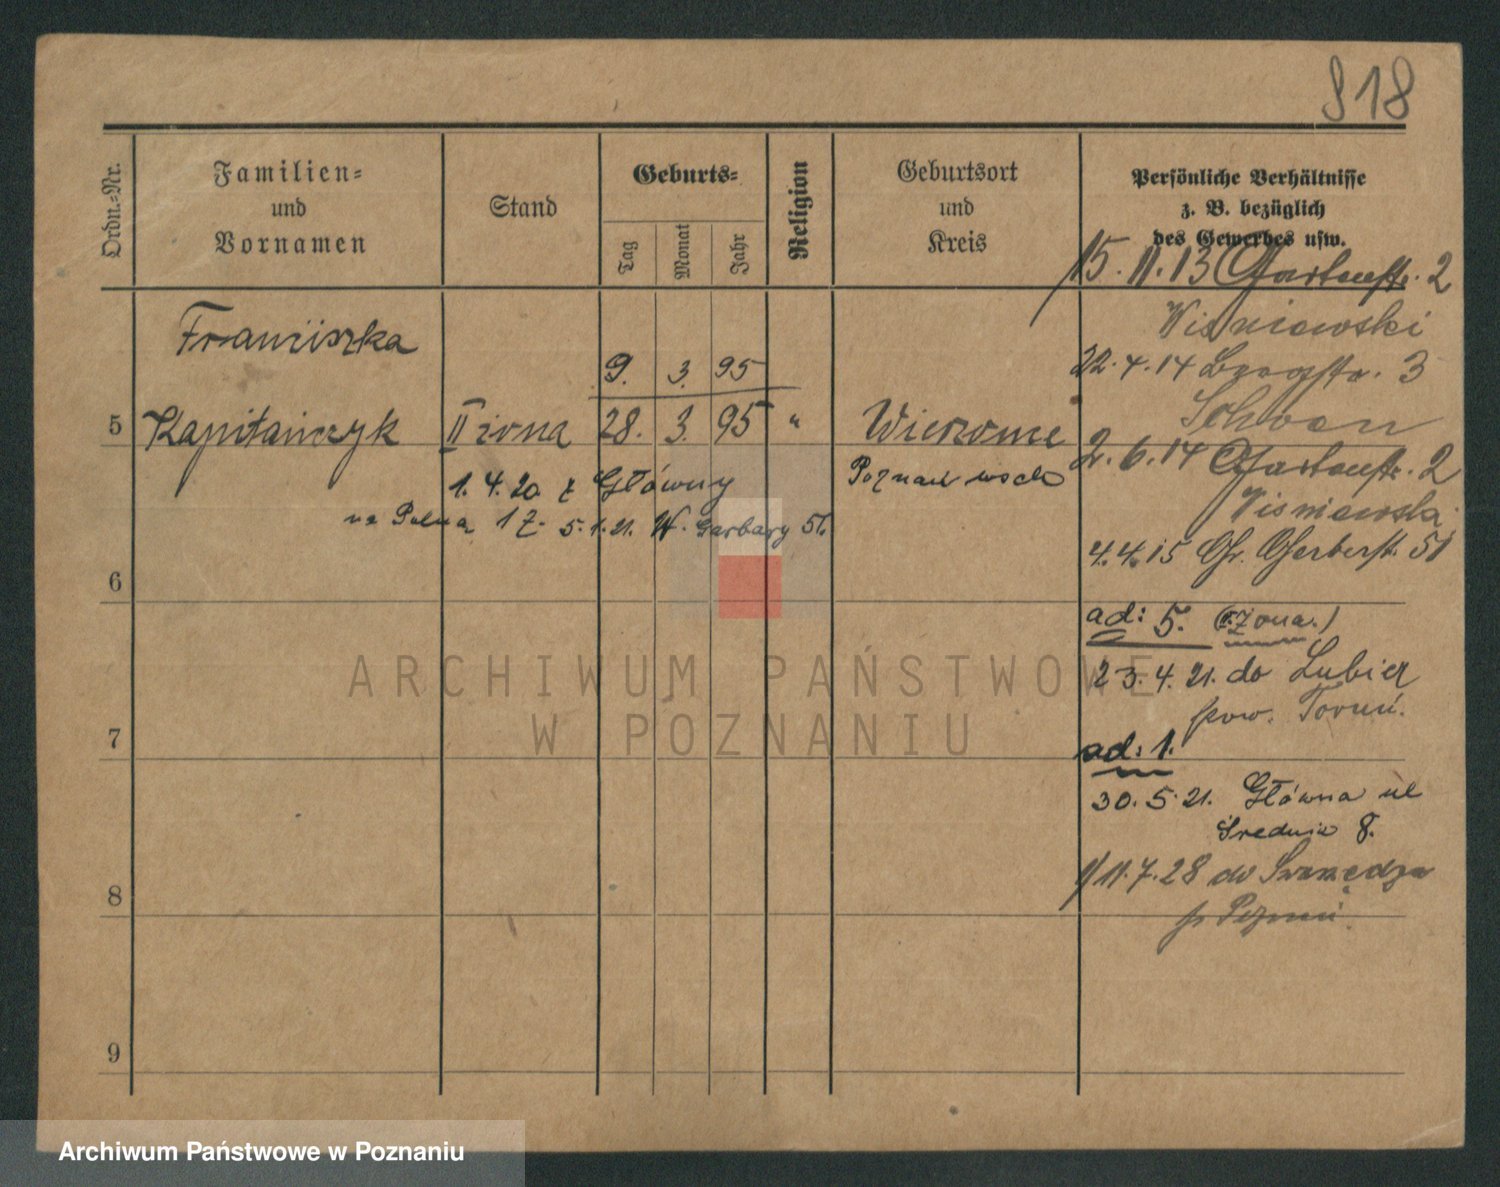 818
Ordn.-Nr.
Familien-
und
Vornamen
Stand
Geburts-
Tag
Monat
Jahr
Religion
Geburtsort
und
Kreis
Persönliche Verhältnisse
z. B. bezüglich
des Gewerbes usw.
15.11.13 Gartenstr. 2
Wisniewski
Franciszka
9. 3. 95
22.4.14 Bergstr. 3
Schwan
5 Kapitańczyk II żona 28. 3. 95 " Wierzonce
2.6.14 Gartenstr. 2
1. 4. 20 z Główny
Poznań wsch
Wisniewska
na Polna 17. 5.1.21. W. Garbary 51.
4.4.15 Gr. Gerberstr. 51
6
ad: 5. (II. żona.)
23.4.21. do Lubicz
pow. Toruń.
7
ad: 1.
30.5.21. Główna ul
Średnia 8.
1/ 11.7.28 do Swarzędza
8
p. Poznań
9
ARCHIWUM PAŃSTWOWE
W POZNANIU
Archiwum Państwowe w Poznaniu